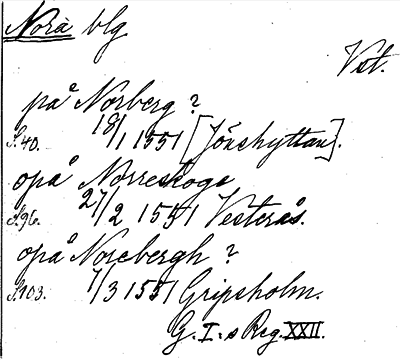 Norå blg
Vst.
på Norberg?
S. 40. 18/1 1551 [Jönshyttan].
opå Norreskoge
S. 96. 27/2 1551 Vesterås.
opå Norebergh?
S. 103. 7/3 1551 Gripsholm.
G. I:s Reg. XXII.